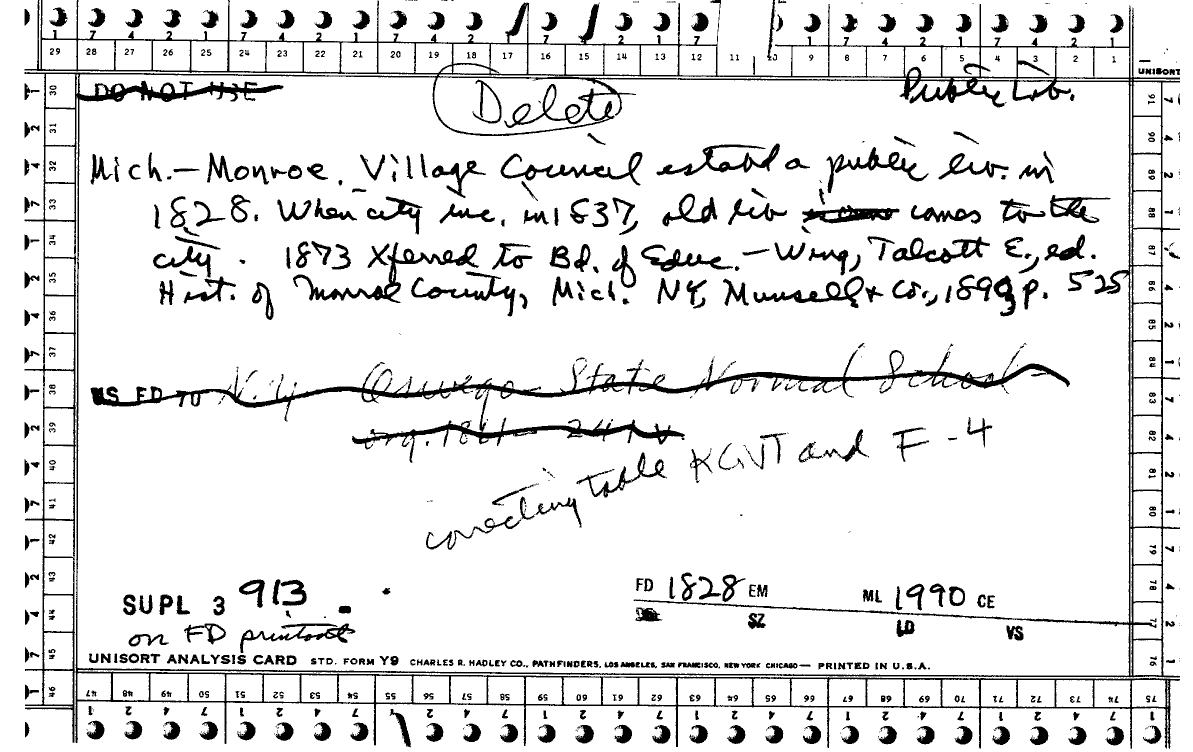 1 7 4 2 1 7 4 2 1 7 4 2 1 7 4 2 1 7 1 7 4 2 1 7 4 2 1
29 28 27 26 25 24 23 22 21 20 19 18 17 16 15 14 13 12 11 10 9 8 7 6 5 4 3 2 1
UNISORT
DO NOT USE
Delete
Public Lib.
Mich.—Monroe. Village Council estabd a public liv. in
1828. When city inc. in 1837, old liv comes to the
city. 1873 Xferred to Bd. of Educ.—Wing, Talcott E., ed.
Hist. of Monroe County, Mich. NY, Munsell & Co., 1890, p. 525
US FD TO N.Y Oswego State Normal School—
org. 1861— 241 v
correcting table KGVT and F-4
SUPL 3 913
on FD printout
FD 1828 EM ML 1990 CE
SZ LD VS
UNISORT ANALYSIS CARD STD. FORM Y9 CHARLES R. HADLEY CO., PATHFINDERS, LOS ANGELES, SAN FRANCISCO, NEW YORK CHICAGO — PRINTED IN U.S.A.
47 48 49 50 51 52 53 54 55 56 57 58 59 60 61 62 63 64 65 66 67 68 69 70 71 72 73 74 75
1 2 4 7 1 2 4 7 2 4 7 1 2 4 7 1 2 4 7 1 2 4 7 1 2 4 7 1
30 31 32 33 34 35 36 37 38 39 40 41 42 43 44 45 46
91 90 89 88 87 86 85 84 83 82 81 80 79 78 77 76